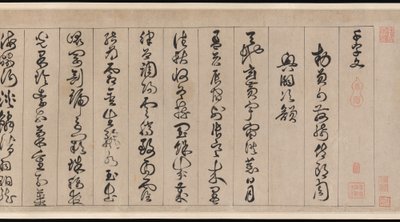 千字文
勅員外散騎侍郎周
興嗣次韻
天地玄黃宇宙洪荒日月
盈昃辰宿列張寒來暑
往秋收冬藏閏餘成歲
律呂調陽雲騰致雨露
結為霜金生麗水玉出
崑岡劍號巨闕珠稱夜
光果珍李柰菜重芥薑
海鹹河淡鱗潛羽翔